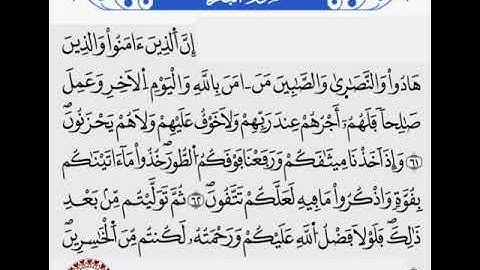 إِنَّ اَ۬لذِينَ ءَامَنُواْ وَالذِينَ
هَادُواْ وَالنَّصَٰرۭىٰ وَالصَّٰبِينَ مَنَ اٰمَنَ بِاللَّهِ وَالْيَوْمِ اِ۬لَاخِرِ وَعَمِلَ
صَٰلِحاٗ فَلَهُمُۥٓ أَجْرُهُمْ عِندَ رَبِّهِمْ وَلَا خَوْفٌ عَلَيْهِمْ وَلَا هُمْ يَحْزَنُونَۖ
٦١ وَإِذَ اَخَذْنَا مِيثَٰقَكُمْ وَرَفَعْنَا فَوْقَكُمُ اُ۬لطُّورَۖ خُذُواْ مَا ءَاتَيْنَٰكُم
بِقُوَّةٖ وَاذْكُرُواْ مَا فِيهِ لَعَلَّكُمْ تَتَّقُونَۖ ٦٢ ثُمَّ تَوَلَّيْتُم مِّنۢ بَعْدِ
ذَٰلِكَۖ فَلَوْلَا فَضْلُ اُ۬للَّهِ عَلَيْكُمْ وَرَحْمَتُهُۥ لَكُنتُم مِّنَ اَ۬لْخَٰسِرِينَۖ